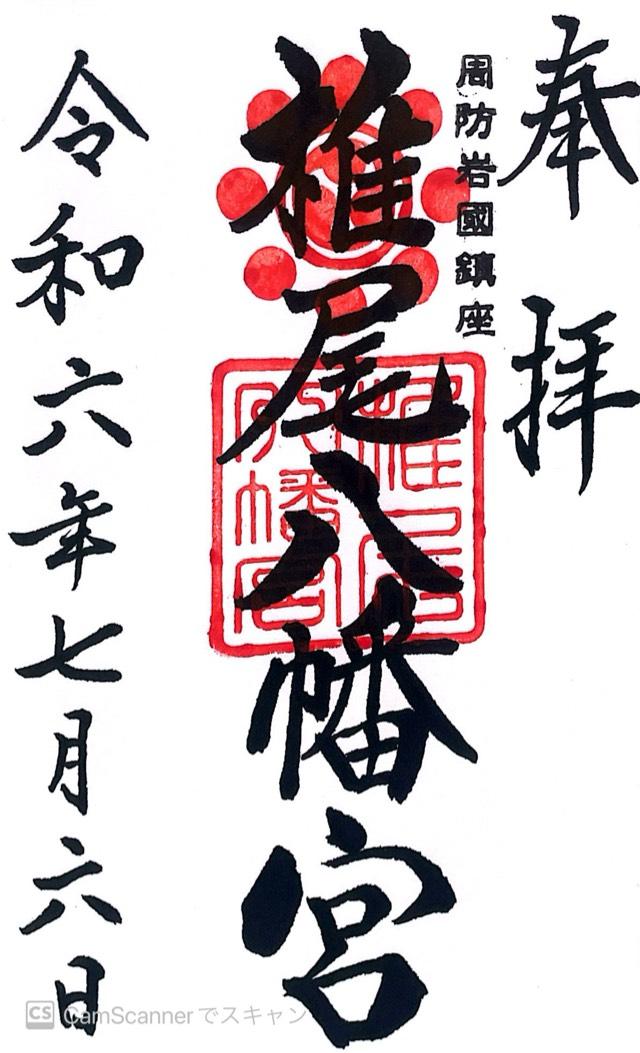 奉拝
周防岩國鎮座
椎尾八幡宮
椎尾八幡宮
令和六年七月六日
CS CamScannerでスキャン